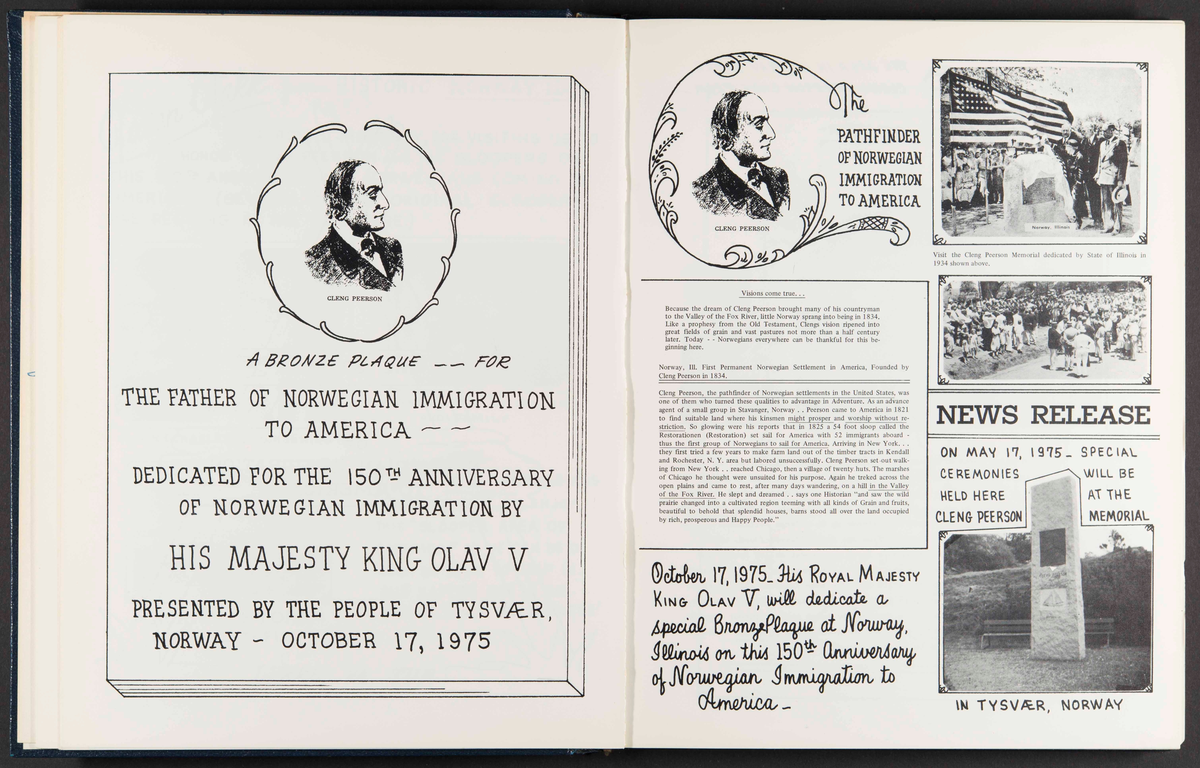 CLENG PEERSON
A BRONZE PLAQUE -- FOR
THE FATHER OF NORWEGIAN IMMIGRATION
TO AMERICA --
DEDICATED FOR THE 150TH ANNIVERSARY
OF NORWEGIAN IMMIGRATION BY
HIS MAJESTY KING OLAV V
PRESENTED BY THE PEOPLE OF TYSVÆR,
NORWAY - OCTOBER 17, 1975
The
PATHFINDER
OF NORWEGIAN
IMMIGRATION
TO AMERICA
CLENG PEERSON
Visions come true...
Because the dream of Cleng Peerson brought many of his countryman
to the Valley of the Fox River, little Norway sprang into being in 1834.
Like a prophesy from the Old Testament, Clengs vision ripened into
great fields of grain and vast pastures not more than a half century
later. Today - - Norwegians everywhere can be thankful for this be-
ginning here.
Norway, Ill. First Permanent Norwegian Settlement in America, Founded by
Cleng Peerson in 1834.
Cleng Peerson, the pathfinder of Norwegian settlements in the United States, was
one of them who turned these qualities to advantage in Adventure. As an advance
agent of a small group in Stavanger, Norway . . Peerson came to America in 1821
to find suitable land where his kinsmen might prosper and worship without re-
striction. So glowing were his reports that in 1825 a 54 foot sloop called the
Restorationen (Restoration) set sail for America with 52 immigrants aboard -
thus the first group of Norwegians to sail for America. Arriving in New York. . .
they first tried a few years to make farm land out of the timber tracts in Kendall
and Rochester, N. Y. area but labored unsuccessfully. Cleng Peerson set out walk-
ing from New York . . reached Chicago, then a village of twenty huts. The marshes
of Chicago he thought were unsuited for his purpose. Again he treked across the
open plains and came to rest, after many days wandering, on a hill in the Valley
of the Fox River. He slept and dreamed . . says one Historian "and saw the wild
prairie changed into a cultivated region teeming with all kinds of Grain and fruits,
beautiful to behold that splendid houses, barns stood all over the land occupied
by rich, prosperous and Happy People."
October 17, 1975_ His ROYAL MAJESTY
KING OLAV V, will dedicate a
special Bronze Plaque at Norway,
Illinois on this 150th Anniversary
of Norwegian Immigration to
America_
Norway, Illinois
Visit the Cleng Peerson Memorial dedicated by State of Illinois in
1934 shown above.
NEWS RELEASE
ON MAY 17, 1975_ SPECIAL
CEREMONIES WILL BE
HELD HERE AT THE
CLENG PEERSON MEMORIAL
IN TYSVÆR, NORWAY